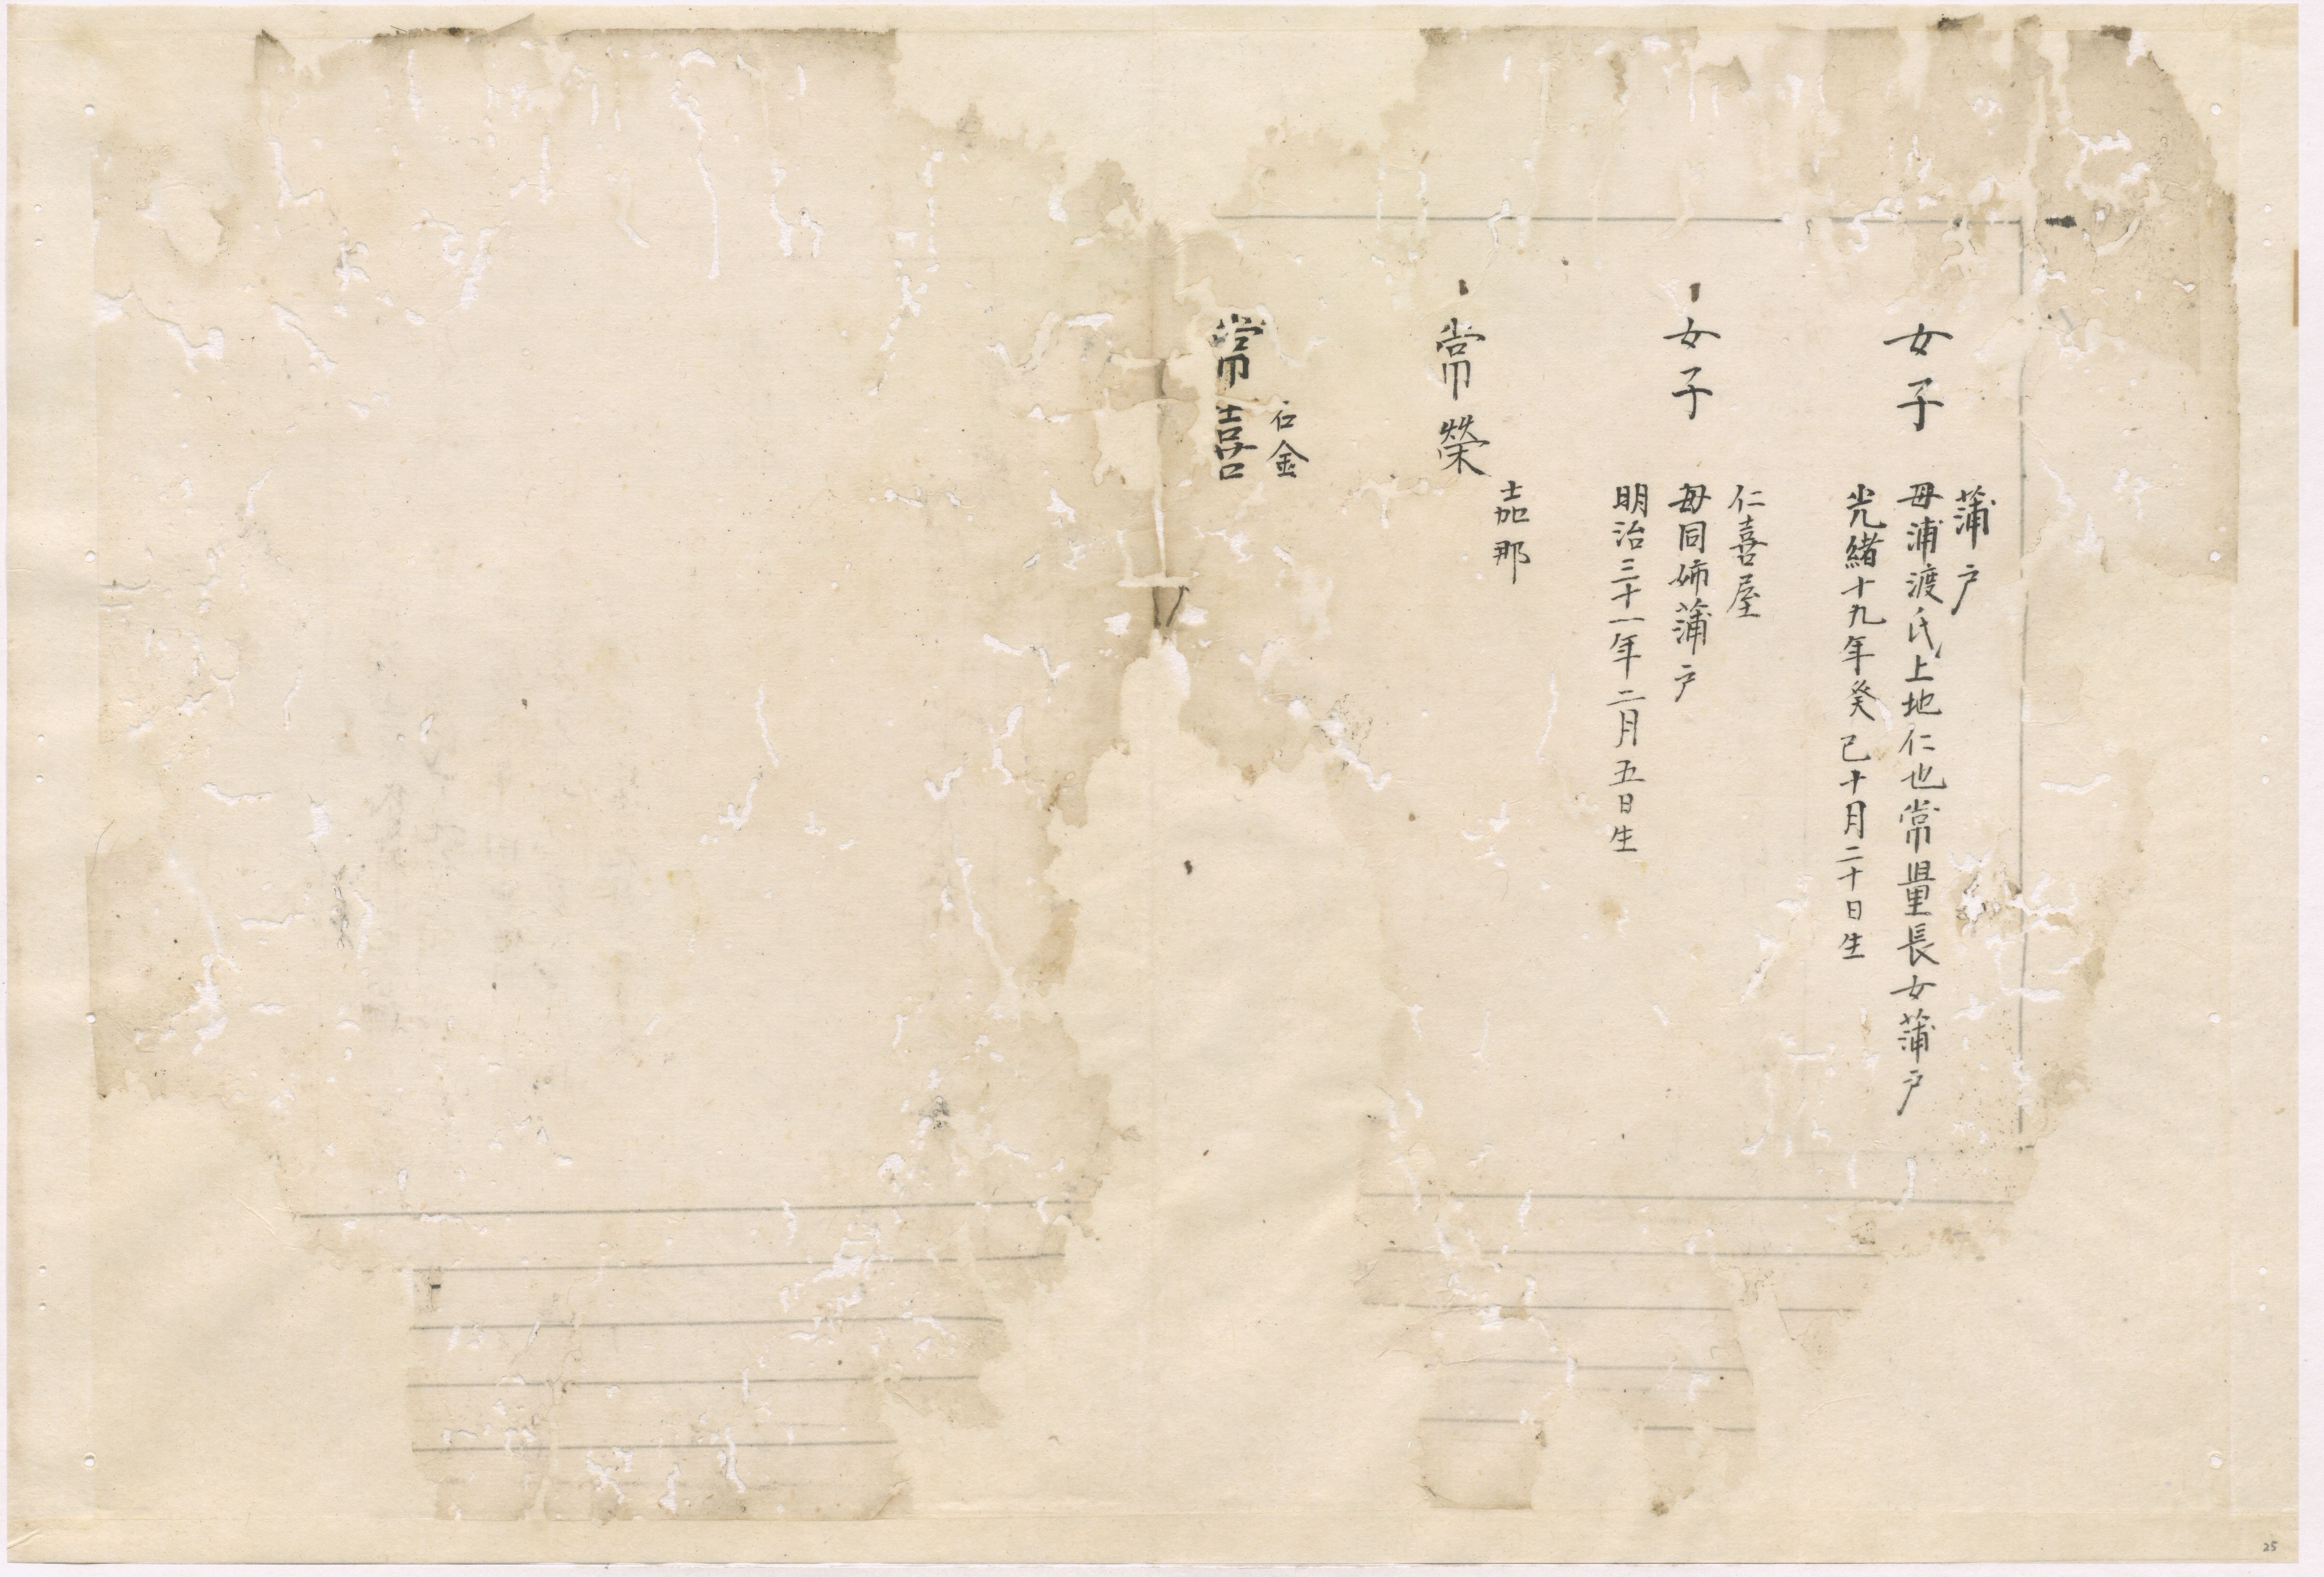 女子
蒲戸
母浦渡氏上地仁也常量長女蒲戸
光緒十九年癸巳十月二十日生
女子
仁喜屋
母同姉蒲戸
明治三十一年二月五日生
常榮
嘉那
常喜
石金
25